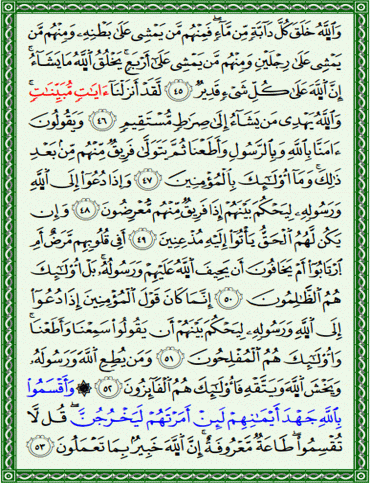 وَٱللَّهُ خَلَقَ كُلَّ دَآبَّةٍ مِّن مَّآءٍ ۖ فَمِنْهُم مَّن يَمْشِى عَلَىٰ بَطْنِهِۦ وَمِنْهُم مَّن
يَمْشِى عَلَىٰ رِجْلَيْنِ وَمِنْهُم مَّن يَمْشِى عَلَىٰٓ أَرْبَعٍ ۚ يَخْلُقُ ٱللَّهُ مَا يَشَآءُ ۚ
إِنَّ ٱللَّهَ عَلَىٰ كُلِّ شَىْءٍ قَدِيرٌ ٤٥ لَّقَدْ أَنزَلْنَآ ءَايَٰتٍ مُّبَيِّنَٰتٍ ۚ
وَٱللَّهُ يَهْدِى مَن يَشَآءُ إِلَىٰ صِرَٰطٍ مُّسْتَقِيمٍ ٤٦ وَيَقُولُونَ
ءَامَنَّا بِٱللَّهِ وَبِٱلرَّسُولِ وَأَطَعْنَا ثُمَّ يَتَوَلَّىٰ فَرِيقٌ مِّنْهُم مِّنۢ بَعْدِ
ذَٰلِكَ ۚ وَمَآ أُو۟لَٰٓئِكَ بِٱلْمُؤْمِنِينَ ٤٧ وَإِذَا دُعُوٓا۟ إِلَى ٱللَّهِ
وَرَسُولِهِۦ لِيَحْكُمَ بَيْنَهُمْ إِذَا فَرِيقٌ مِّنْهُم مُّعْرِضُونَ ٤٨ وَإِن
يَكُن لَّهُمُ ٱلْحَقُّ يَأْتُوٓا۟ إِلَيْهِ مُذْعِنِينَ ٤٩ أَفِى قُلُوبِهِم مَّرَضٌ أَمِ
ٱرْتَابُوٓا۟ أَمْ يَخَافُونَ أَن يَحِيفَ ٱللَّهُ عَلَيْهِمْ وَرَسُولُهُۥ ۚ بَلْ أُو۟لَٰٓئِكَ
هُمُ ٱلظَّٰلِمُونَ ٥٠ إِنَّمَا كَانَ قَوْلَ ٱلْمُؤْمِنِينَ إِذَا دُعُوٓا۟
إِلَى ٱللَّهِ وَرَسُولِهِۦ لِيَحْكُمَ بَيْنَهُمْ أَن يَقُولُوا۟ سَمِعْنَا وَأَطَعْنَا ۚ
وَأُو۟لَٰٓئِكَ هُمُ ٱلْمُفْلِحُونَ ٥١ وَمَن يُطِعِ ٱللَّهَ وَرَسُولَهُۥ
وَيَخْشَ ٱللَّهَ وَيَتَّقْهِ فَأُو۟لَٰٓئِكَ هُمُ ٱلْفَآئِزُونَ ٥٢ ۞ وَأَقْسَمُوا۟
بِٱللَّهِ جَهْدَ أَيْمَٰنِهِمْ لَئِنْ أَمَرْتَهُمْ لَيَخْرُجُنَّ ۖ قُل لَّا
تُقْسِمُوا۟ ۖ طَاعَةٌ مَّعْرُوفَةٌ ۚ إِنَّ ٱللَّهَ خَبِيرٌۢ بِمَا تَعْمَلُونَ ٥٣